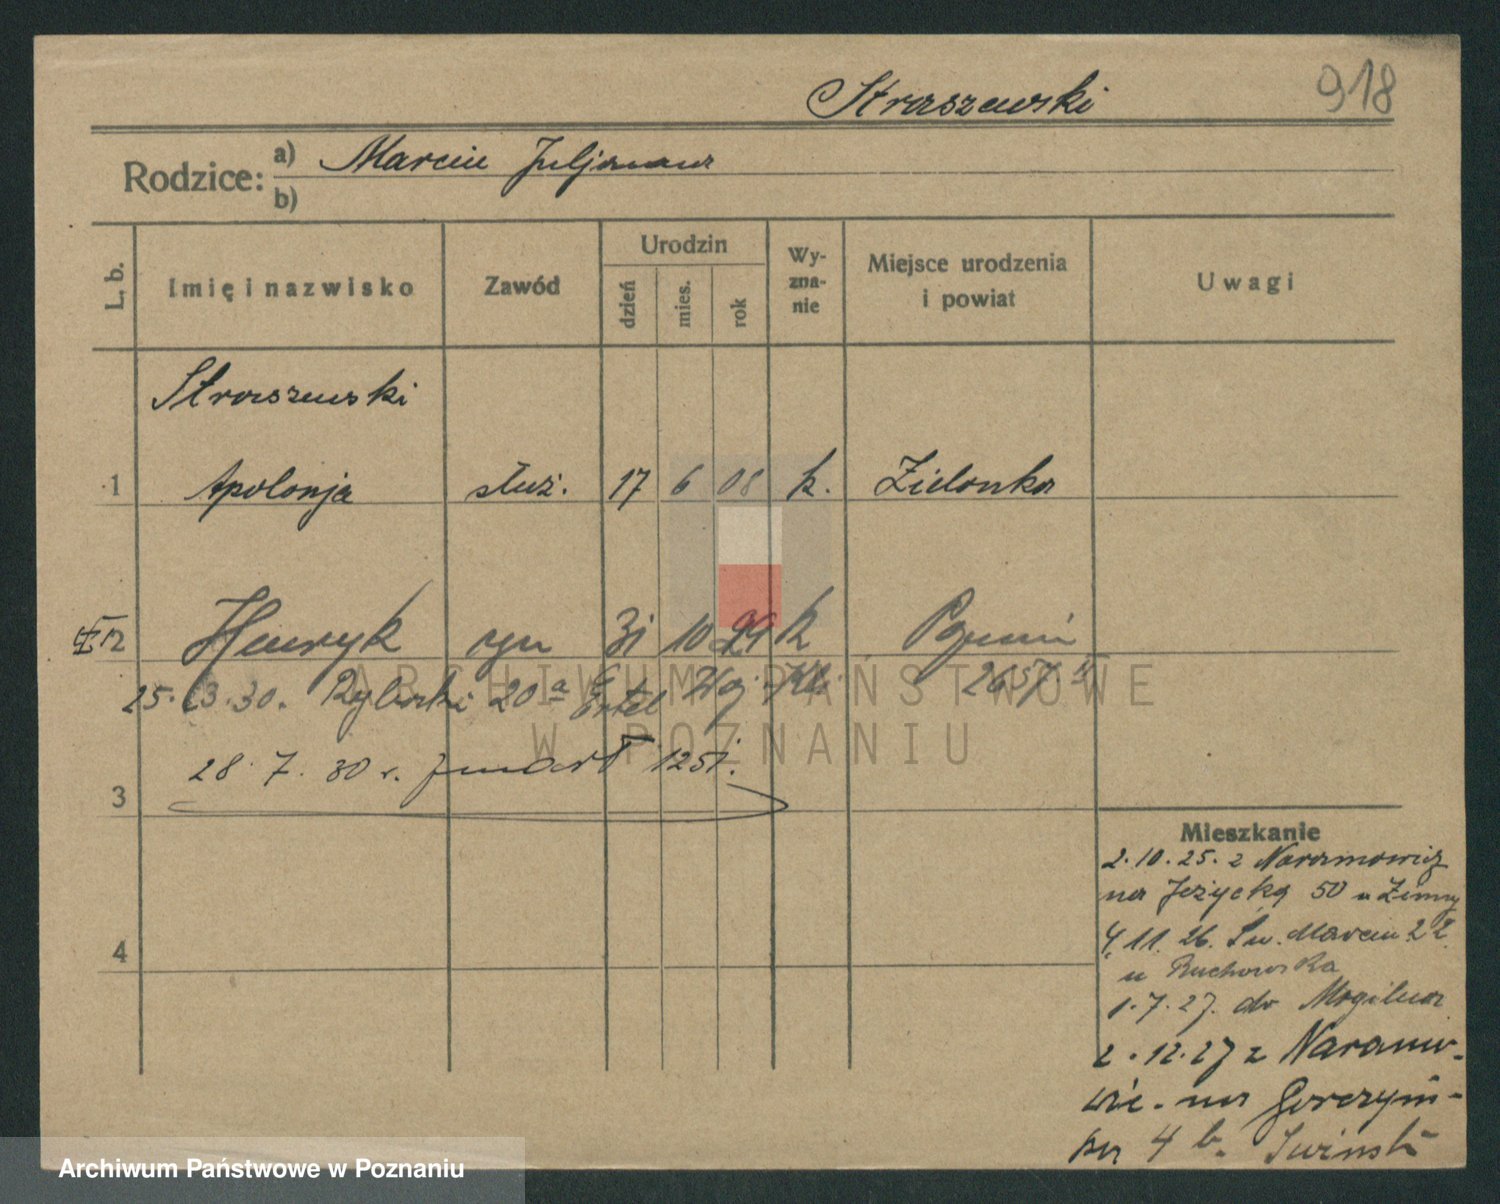 Straszewski
918
Rodzice: a) Marcin Juljanna
b)
L. b. Imię i nazwisko Zawód Urodzin dzień mies. rok Wy-zna-nie Miejsce urodzenia i powiat Uwagi
Straszewski
1 Apolonja służ. 17 6 08 k. Zielonka
2 Henryk syn 31 10 29 k Poznań
25. 3. 30. Rybaki 20a 2657
28. 7. 30 r. zmarł 1251.
3
4
Mieszkanie
2.10.25. z Naramowic
na Jeżycką 50 u Zimny
4.11.26. Św. Marcin 22
u Ruchowska
1.7.27. do Mogilna
2.12.27 z Naramo-
wic. na Gorczyń-
ska 4 b. Iwiński
ARCHIWUM PAŃSTWOWE
W POZNANIU
Archiwum Państwowe w Poznaniu